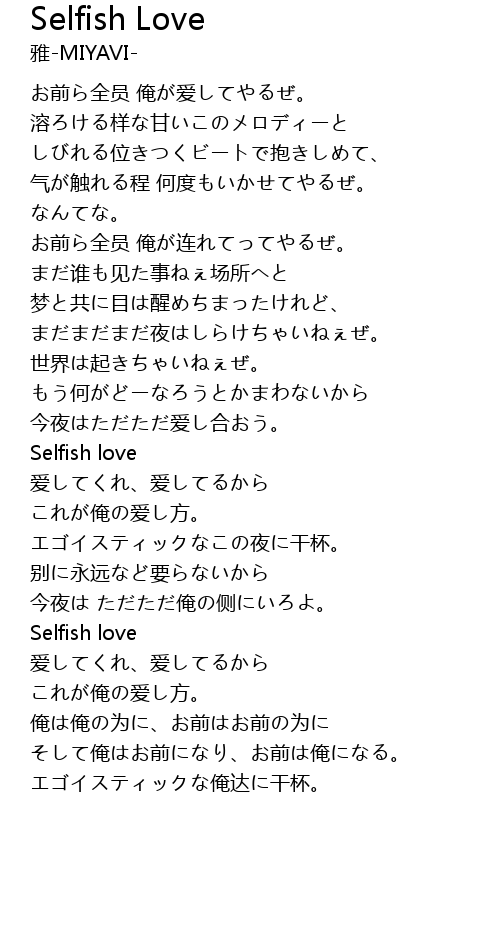 Selfish Love
雅-MIYAVI-
お前ら全员 俺が爱してやるぜ。
溶ろける様な甘いこのメロディーと
しびれる位きつくビートで抱きしめて、
气が触れる程 何度もいかせてやるぜ。
なんてな。
お前ら全员 俺が连れてってやるぜ。
まだ谁も见た事ねぇ场所へと
梦と共に目は醒めちまったけれど、
まだまだまだ夜はしらけちゃいねぇぜ。
世界は起きちゃいねぇぜ。
もう何がどーなろうとかまわないから
今夜はただただ爱し合おう。
Selfish love
爱してくれ、爱してるから
これが俺の爱し方。
エゴイスティックなこの夜に干杯。
别に永远など要らないから
今夜は ただただ俺の侧にいろよ。
Selfish love
爱してくれ、爱してるから
これが俺の爱し方。
俺は俺の为に、お前はお前の为に
そして俺はお前になり、お前は俺になる。
エゴイスティックな俺达に干杯。